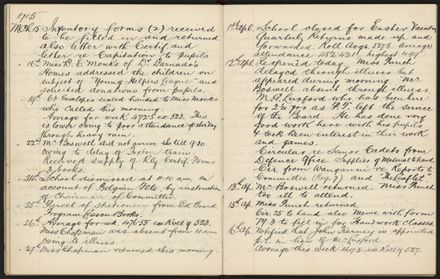 1915
Mch 15 Inventory forms (2) received
to be filled in and returned
also letter with Certif and
re Capitation to pupils
16th Miss E. Monks of Dr Barnados
Homes addressed the children on
subject of Young Helpers League and
solicited donations from pupils.
19th 63 Envelopes sealed handed to Miss Monks
who called this morning
Average for week 479.5 ex 523. This
is low owing to poor attendance yesterday
through heavy rain.
22nd Mr Boswell did not arrive till 9.30
owing to delay of Foxton Train.
Received supply of Reg Certif Forms
3 books.
24th School dismissed at 11.10 am on
account of Belgian Fete, by instruction
Chairman of Committee.
25th Parcel of stationery from Ed Board
Program Lesson Books.
26th Average for week 476.55 ex Roll of 523.
Miss Chapman was absent from 11 am
owing to illness.
29th Miss Chapman returned this morning
1st Apl School closed for Easter Vacation
Quarterly Returns made up and
forwarded. Roll 527. Average
attendance highest 499.
12th Apl Reopened today. Miss Punch
delayed through illness but
appeared during morning. Mr
Boswell absent through illness.
Mr Luxford who has been here
for 2½ yrs as P.T. left the service
of the Board. He had done very
good work here with his pupils
& took keen interest in his work
and games.
Circular re Senior Cadets from
Defence Office. Supplies of Material to hand
Cir. from Wanganui re Report to
Committee (Reg 7) and Patriotic
13th Ap Mr Boswell returned. Miss Punch
too ill to attend.
15th Ap Miss Punch returned
Cir 25 to hand also Memo with form
M3 to fill in for Handwork Classes
16th Ap Notified that John Kearney is appointed
P.T. in lieu of Mr Luxford
Average this week 491.5 ex Roll of 527.